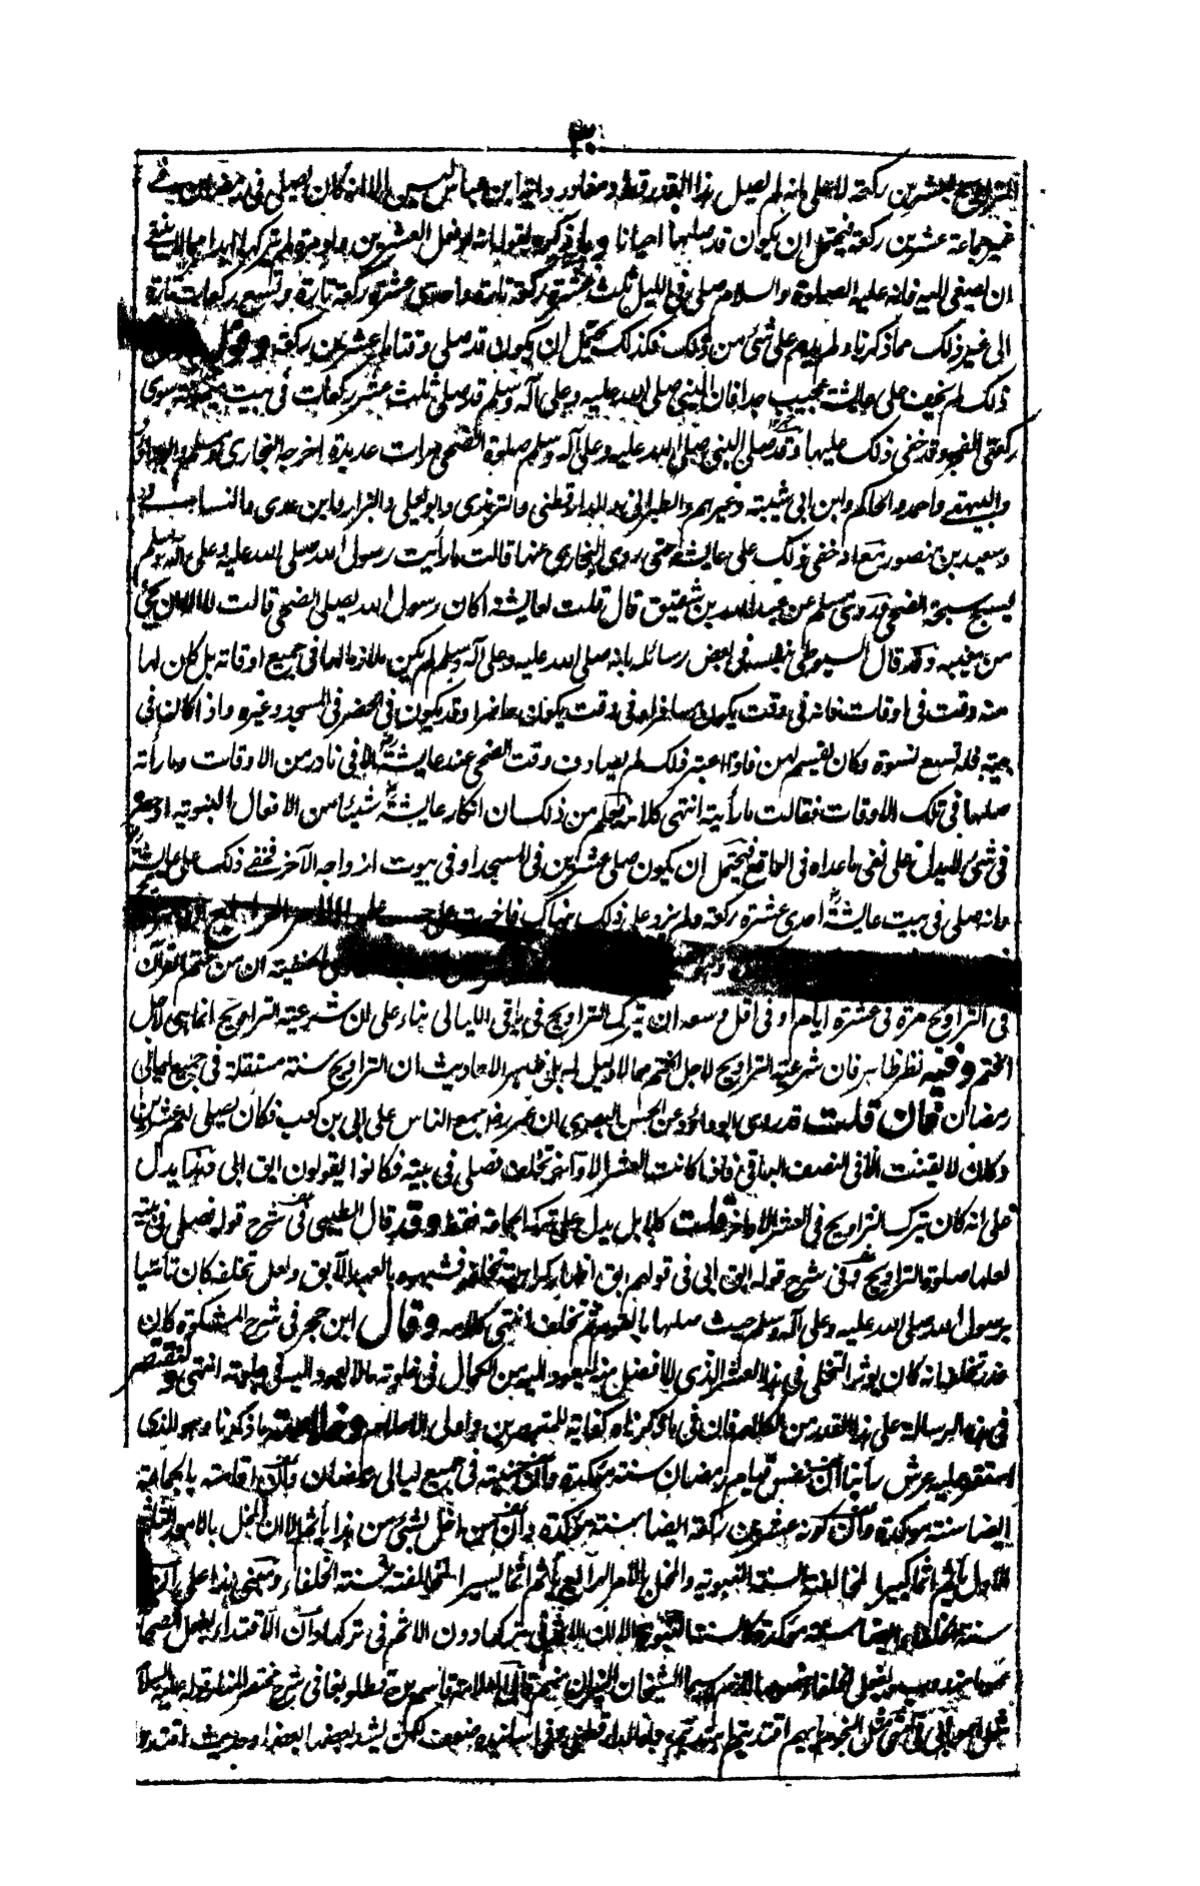 ٣٠
التراويح بعشرين ركعة لا على انه لم يصل هذا القدر قط ومفاد رواية ابن عباس ليس الا انه كان يصلى فى رمضان فى
غير جماعة عشرين ركعة فيحتمل ان يكون قد صلها احيانا وما ذكره بقوله انه لو فعل العشرين ولو مرة لم يتركها ابدا مما لا ينبغى
ان يصغى اليه فانه عليه الصلوة والسلام صلى فى الليل ثلث عشرة ركعة تارة واحدى عشرة ركعة تارة وتسع ركعات تارة
الى غير ذلك مما ذكرنا ولم يدم على شئ من ذلك فكذلك يحتمل ان يكون قد صلى وقتا ما عشرين ركعة وقوله
ذلك لم يخف على عايشة عجيب جدا فان النبى صلى الله عليه وعلى آله وسلم قد صلى ثلث عشر ركعات فى بيت ميمونة سوى
ركعتى الفجر وقد خفى ذلك عليها وقد صلى النبى صلى الله عليه وعلى آله وسلم صلوة الضحى مرات عديدة اخرجه البخارى ومسلم
والبيهقى واحمد والحاكم وابن ابى شيبة وغيرهم والطبرانى والدارقطنى والترمذى وابو يعلى والبزار وابن عدى والنسائى
وسعيد بن منصور مع انه خفى ذلك على عايشة حتى روى البخارى عنها قالت ما رأيت رسول الله صلى الله عليه وعلى آله وسلم
يسبح سبحة الضحى وروى مسلم عن عبد الله بن شقيق قال قلت لعايشة اكان رسول الله يصلى الضحى قالت لا الا ان يجئ
من مغيبه وقد قال السيوطى نفسه فى بعض رسائله بانه صلى الله عليه وعلى آله وسلم لم يكن ملازما لها فى جميع اوقاته بل كان لها
منه وقت فى اوقات فانه فى وقت يكون مسافرا وفى وقت يكون حاضرا وقد يكون فى الحضر فى المسجد وغيره واذا كان فى
بيته فله تسع نسوة وكان يقسم لهن فاذا اعتبر ذلك لم يصادف وقت الضحى عند عايشة الا فى نادر من الاوقات وما رأته
صلها فى تلك الاوقات فقالت ما رأيته انتهى كلامه فعلم من ذلك ان انكار عايشة شيئا من الافعال النبوية
فى شئ لا يدل على نفى ما عداه فى الواقع فيحتمل ان يكون صلى عشرين فى المسجد او فى بيوت ازواجه الآخر فخفى ذلك على عايشة
وانه صلى فى بيت عايشة احدى عشرة ركعة ولم يزد على ذلك هناك فاخبرت على حسب علمها
الحنفية ان من ختم القرآن
فى التراويح مرة فى عشرة ايام او فى اقل وسعه ان يترك التراويح فى باقى الليالى بناء على ان شرعية التراويح انما هى لاجل
الختم وفيه نظر ظاهر فان شرعية التراويح لاجل الختم مما لا دليل له بل ظهر من الاحاديث ان التراويح سنة مستقلة فى جميع ليالى
رمضان فان قلت قد روى ابو داؤد عن الحسن البصرى ان عمر رض جمع الناس على ابى بن كعب فكان يصلى لهم عشرين
وكان لا يقنت الا فى النصف الباقى فاذا كانت العشر الاواخر تخلف فصلى فى بيته فكانوا يقولون ابق ابى فهذا يدل
على انه كان يترك التراويح فى العشر الاواخر قلت كلا بل يدل على تركه الجماعة فقط وقد قال الطيبى فى شرح قوله فصلى فى بيته
لعلها صلوة التراويح وفى شرح قوله ابق ابى فى قولهم ابق اظهار كراهة تخلفه فشبهوه بالعبد الآبق ولعل تخلفه كان تأسيا
برسول الله صلى الله عليه وعلى آله وسلم حيث صلها بالقوم ثم تخلف انتهى كلامه وقال ابن حجر فى شرح المشكوة كان
عذر تخلفه انه كان يؤثر التخلى فى هذا العشر الذى لا افضل منه ليعود اليه من الكمال فى خلوته ما لا يعود اليه فى جلوته انتهى ولنقتصر
فى هذه الرسالة على هذا القدر من الكلام فان فى ما ذكرناه كفاية للمتبصرين واولى الاحلام وخلاصة ما ذكرنا وهو الذى
استقر عليه عرش رأينا ان نفس قيام رمضان سنة مؤكدة وان سنيته فى جميع ليالى رمضان وان اقامته بالجماعة
ايضا سنة مؤكدة وان كونه عشرين ركعة ايضا سنة مؤكدة وان من اخل بشئ من هذا يأثم الا ان المخل بالامور الثلثة
الاول يأثم اثما كبيرا لمخالفة السنة النبوية والمخل بالامر الرابع يأثم اثما يسيرا لمخالفة سنة الخلفاء ومبنى هذا على ان
سنة الخلفاء ايضا سنة مؤكدة كالسنة النبوية الا ان الاثم فى تركها دون الاثم فى تركها وان الاقتداء بفعل الصحابة
سيما الشيخان قال العلامة قاسم بن قطلوبغا فى شرح مختصر المنار قوله عليه السلام
مثل اصحابى فى امتى مثل النجوم بايهم اقتديتم اهتديتم رواه الدارقطنى وفى اسانيده ضعف لكن يشد بعضها بعضا وحديث اقتدوا